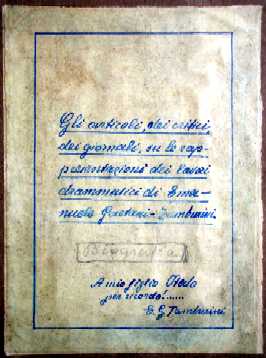 Gli articoli, dei critici
dei giornali, su le rap-
presentazioni dei lavori
drammatici di Ema-
nuele Tamburini.
Biografia
A mio figlio
per ricordo!......
E. G. Tamburini